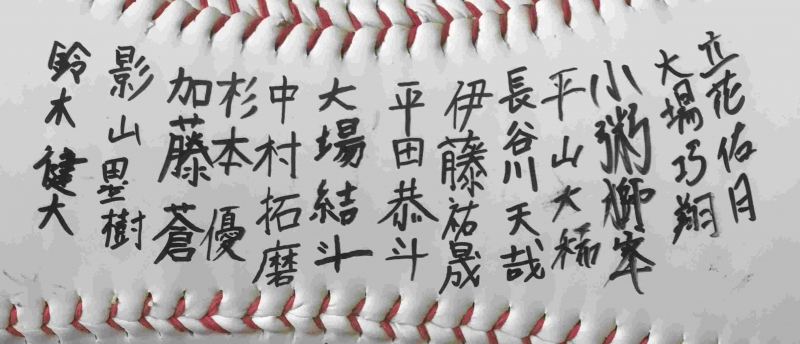 立花佑月
大場巧翔
小粥
平山大稀
長谷川天哉
伊藤祐晟
平田恭斗
大場結斗
中村拓磨
杉本優
加藤蒼
影山塁樹
鈴木健大